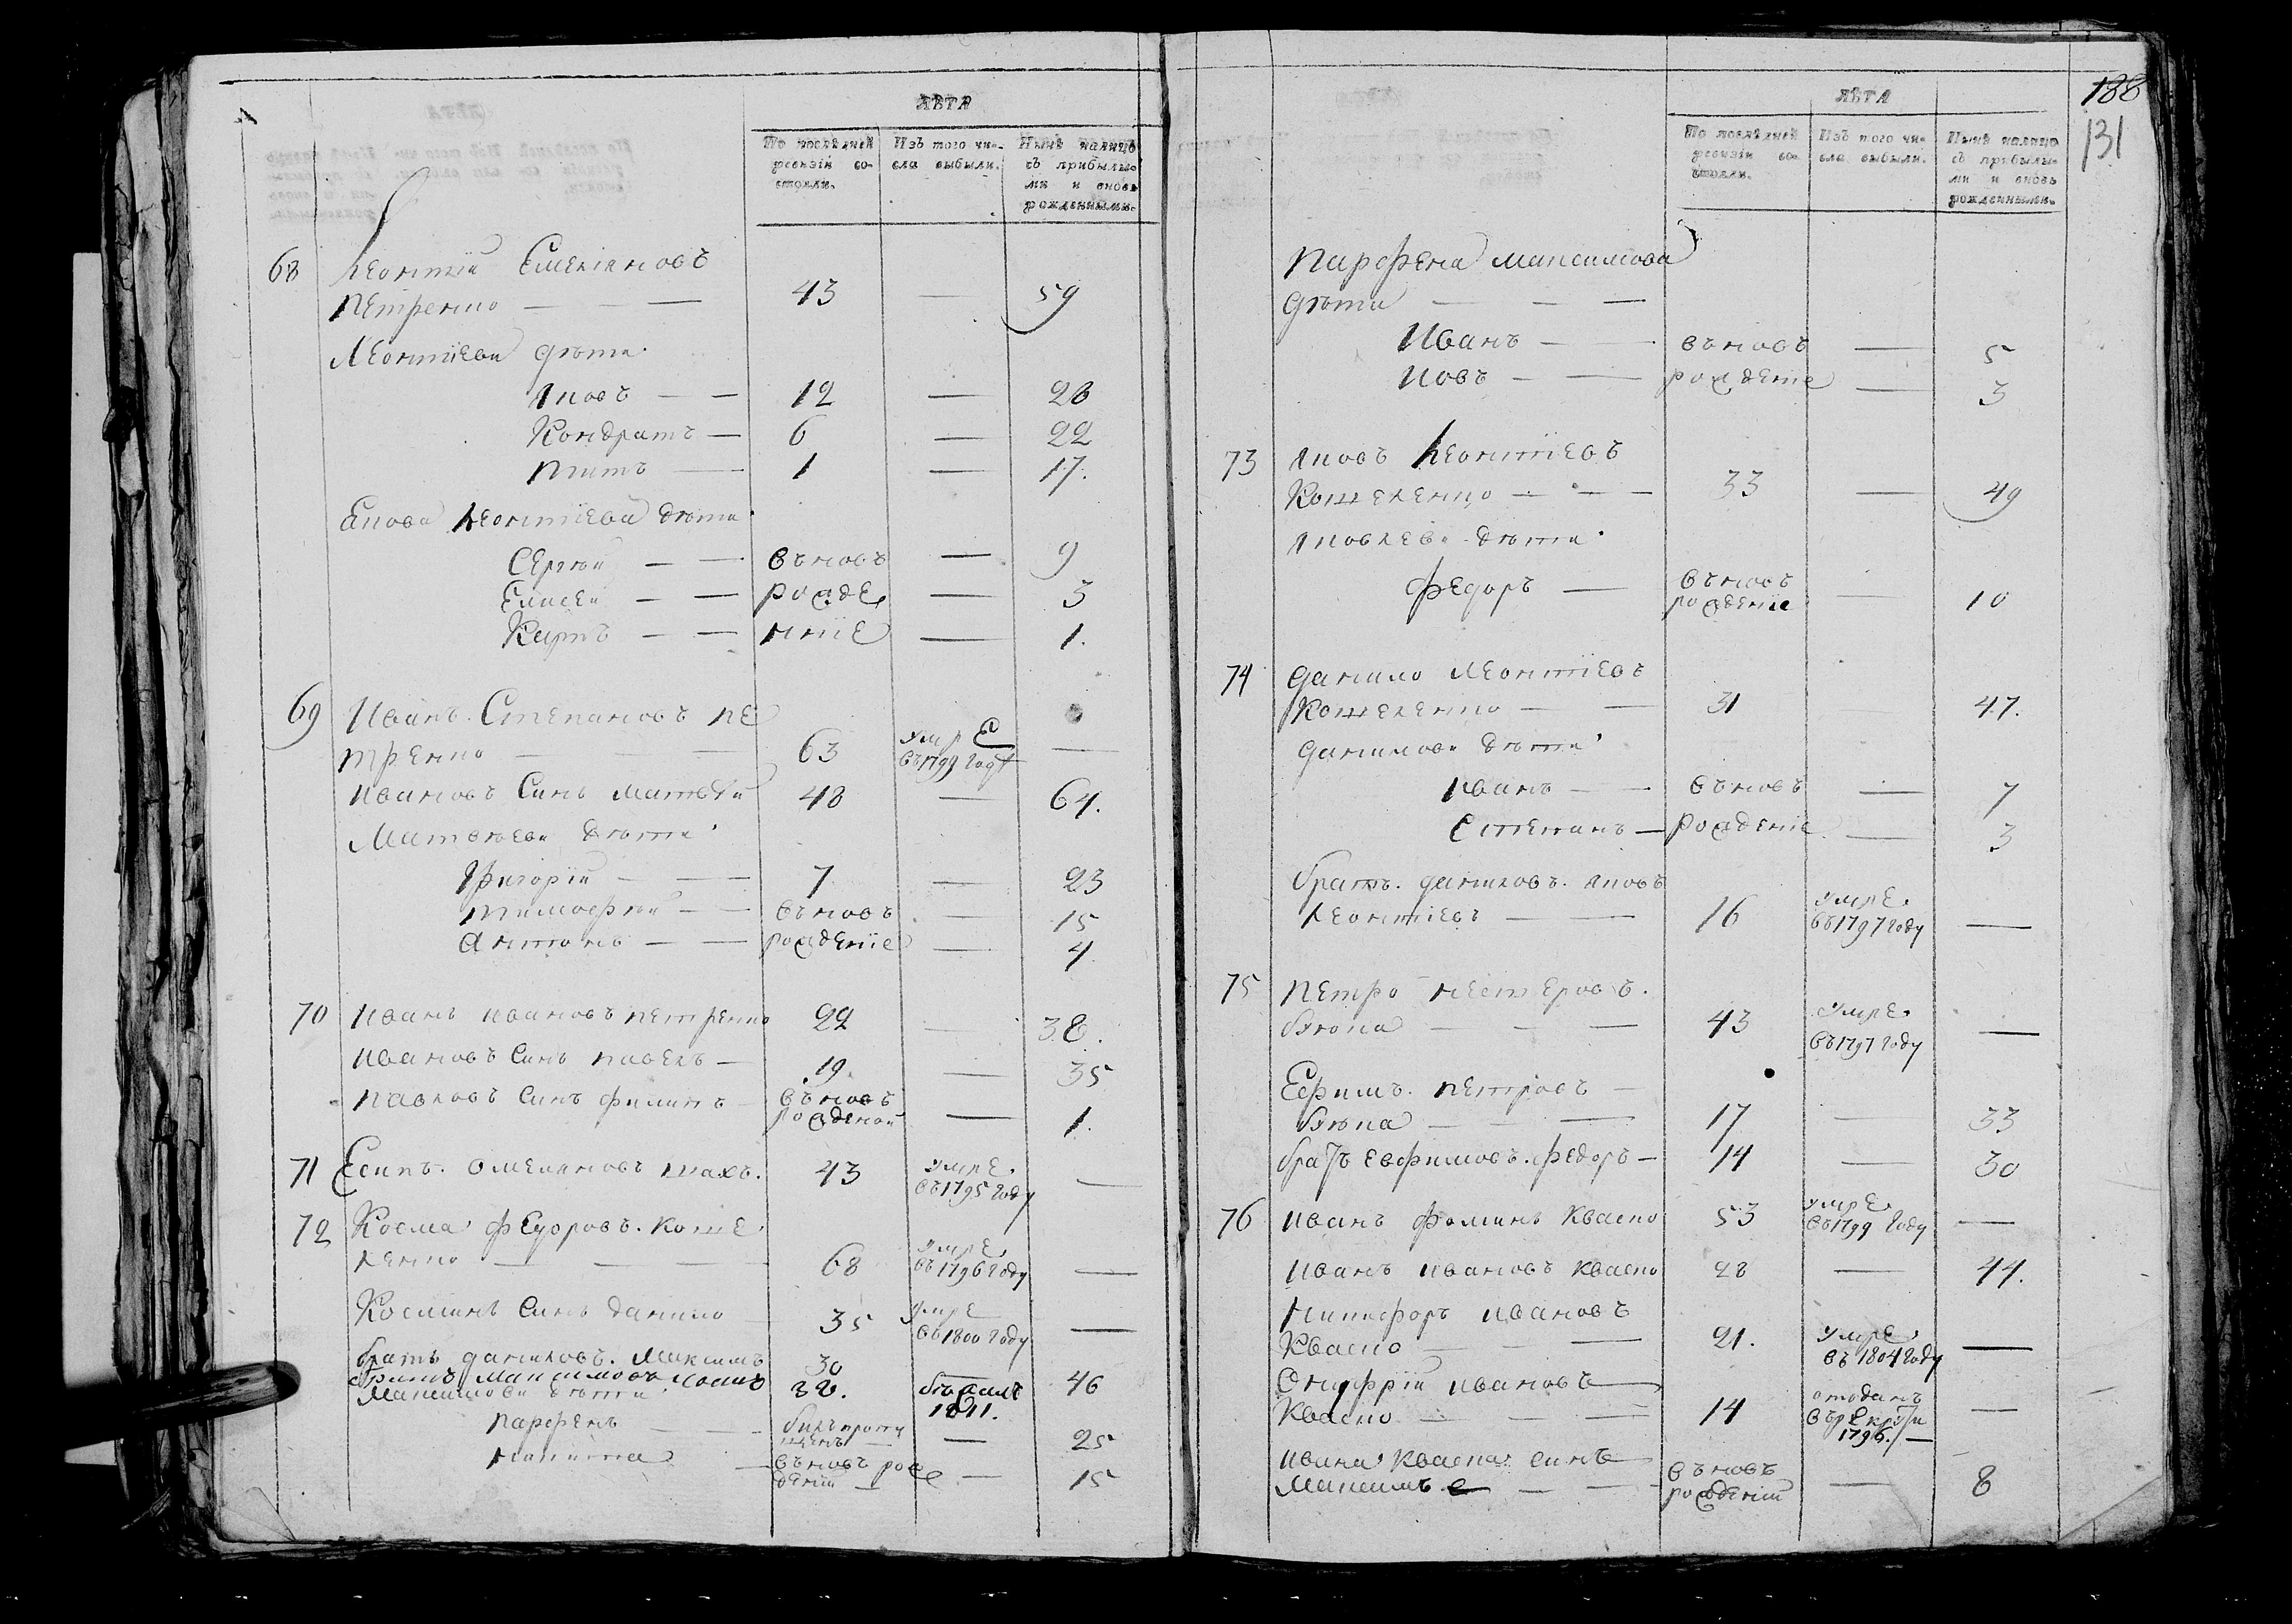 ЛѢТА
По послѣдней ревизіи состояли.
Изъ того числа выбыли.
Нынѣ налицо съ прибылыми и вновь рожденными.
68 Леонтій Емеліановъ
Петренко — — 43 — 59
Леонтіеви дѣти
Яковъ — — 12 — 28
Кондратъ — 6 — 22
Титъ — 1 — 17.
Якова Леонтіева дѣти
Сергѣй — — въновъ — 9
Елисей — — рожде — 3
Карпъ — — нніе — 1.
69 Иванъ Степановъ Пе
тренко — — 63 умре въ 1799 году —
Ивановъ синъ Матвѣй 48 — 64.
Матвѣеви дѣти
Григорій — — 7 — 23
Тимофѣй — — въновъ — 15
Антонъ — — рожденіе — 4
70 Иванъ Ивановъ Петренко 22 — 38.
Ивановъ синъ Павелъ — 19. — 35
Павловъ синъ Филипъ въновъ рожденой — 1.
71 Есипъ Омеляновъ 43 умре въ 1795 году —
72 Косма Федоровъ Коше
ленко — — — 68 умре въ 1796 году —
Косминъ синъ Данило 35 умре въ 1800 году —
братъ Даниловъ Максимъ 30 — 46
братъ Максимовъ 32. 1811.
Максимови дѣти
Парфенъ — — билъ — 25
Никита — въновъ рожденій — 15
188
131
ЛѢТА
По послѣдней ревизіи состояли.
Изъ того числа выбыли.
Нынѣ налицо съ прибылыми и вновь рожденными.
Парфена Максимова
дѣти — — —
Иванъ — — въновъ — 5
Иовъ — — рожденіе — 3
73 Яковъ Леонтіевъ
Кошеленко — — — 33 — 49
Яковлеви дѣти
Федоръ — въновъ рожденіе — 10
74 Данило Леонтіевъ
Кошеленко — — 31 47.
Данилови дѣти
Иванъ — — въновъ — 7
Степанъ — рожденіе — 3
братъ Даниловъ Яковъ
Леонтіевъ — — 16 умре въ 1797 году —
75 Петро Нестеровъ
Бѣлока — — — 43 умре въ 1797 году —
Ефимъ Петровъ —
— — 17 — 33
братъ Евфимовъ Федоръ — 14 — 30
76 Иванъ Фоминъ Кваско 53 умре въ 1799 году —
Иванъ Ивановъ Кваско 28 — 44.
Никифоръ Ивановъ
Кваско — — — 21. умре въ 1804 году —
Онифрій Ивановъ
Кваско — — — 14 отданъ въ рекрути 1796. —
Ивана Кваска синъ
Максимъ — — въновъ рожденій — 8